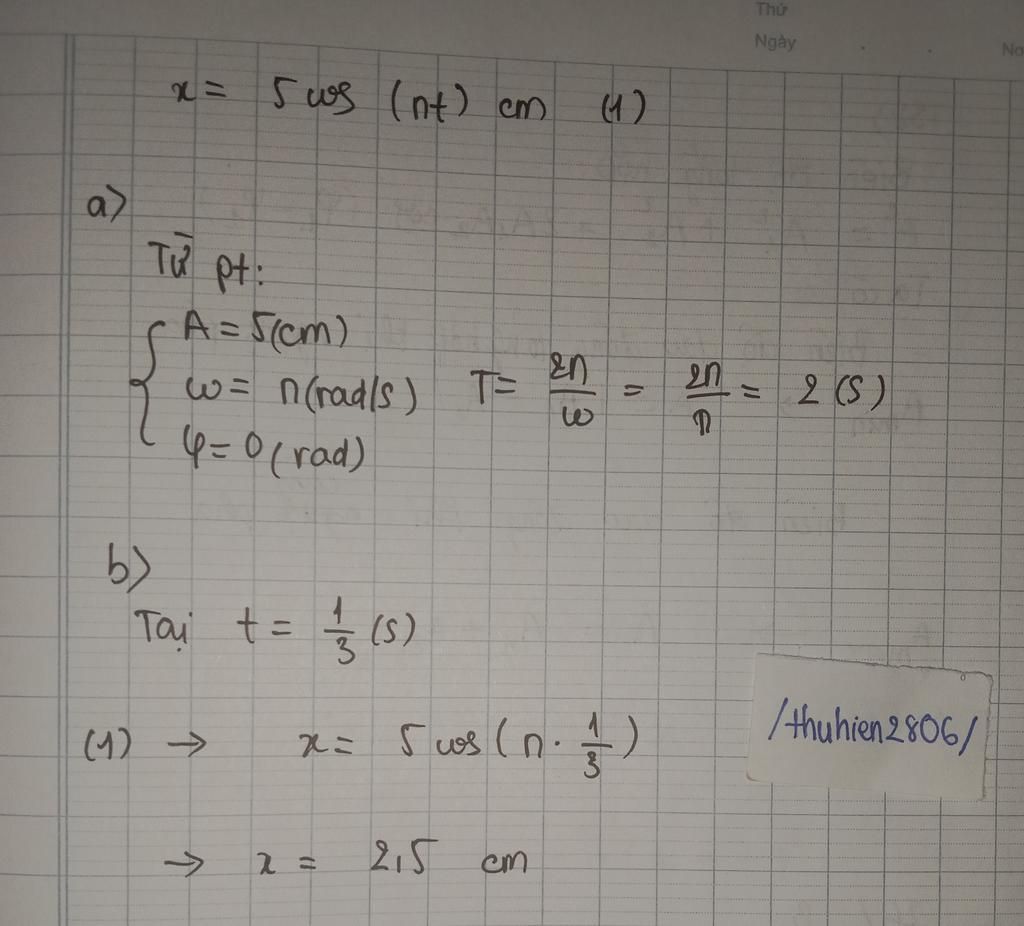 Thứ
Ngày
x = 5 cos (πt) cm (1)
a)
Từ pt:
A = 5(cm)
ω = π(rad/s) T = 2π/ω = 2π/π = 2 (s)
φ = 0 (rad)
b)
Tại t = 1/3 (s)
(1) → x = 5 cos (π · 1/3)
→ x = 2,5 cm
/thuhien2806/